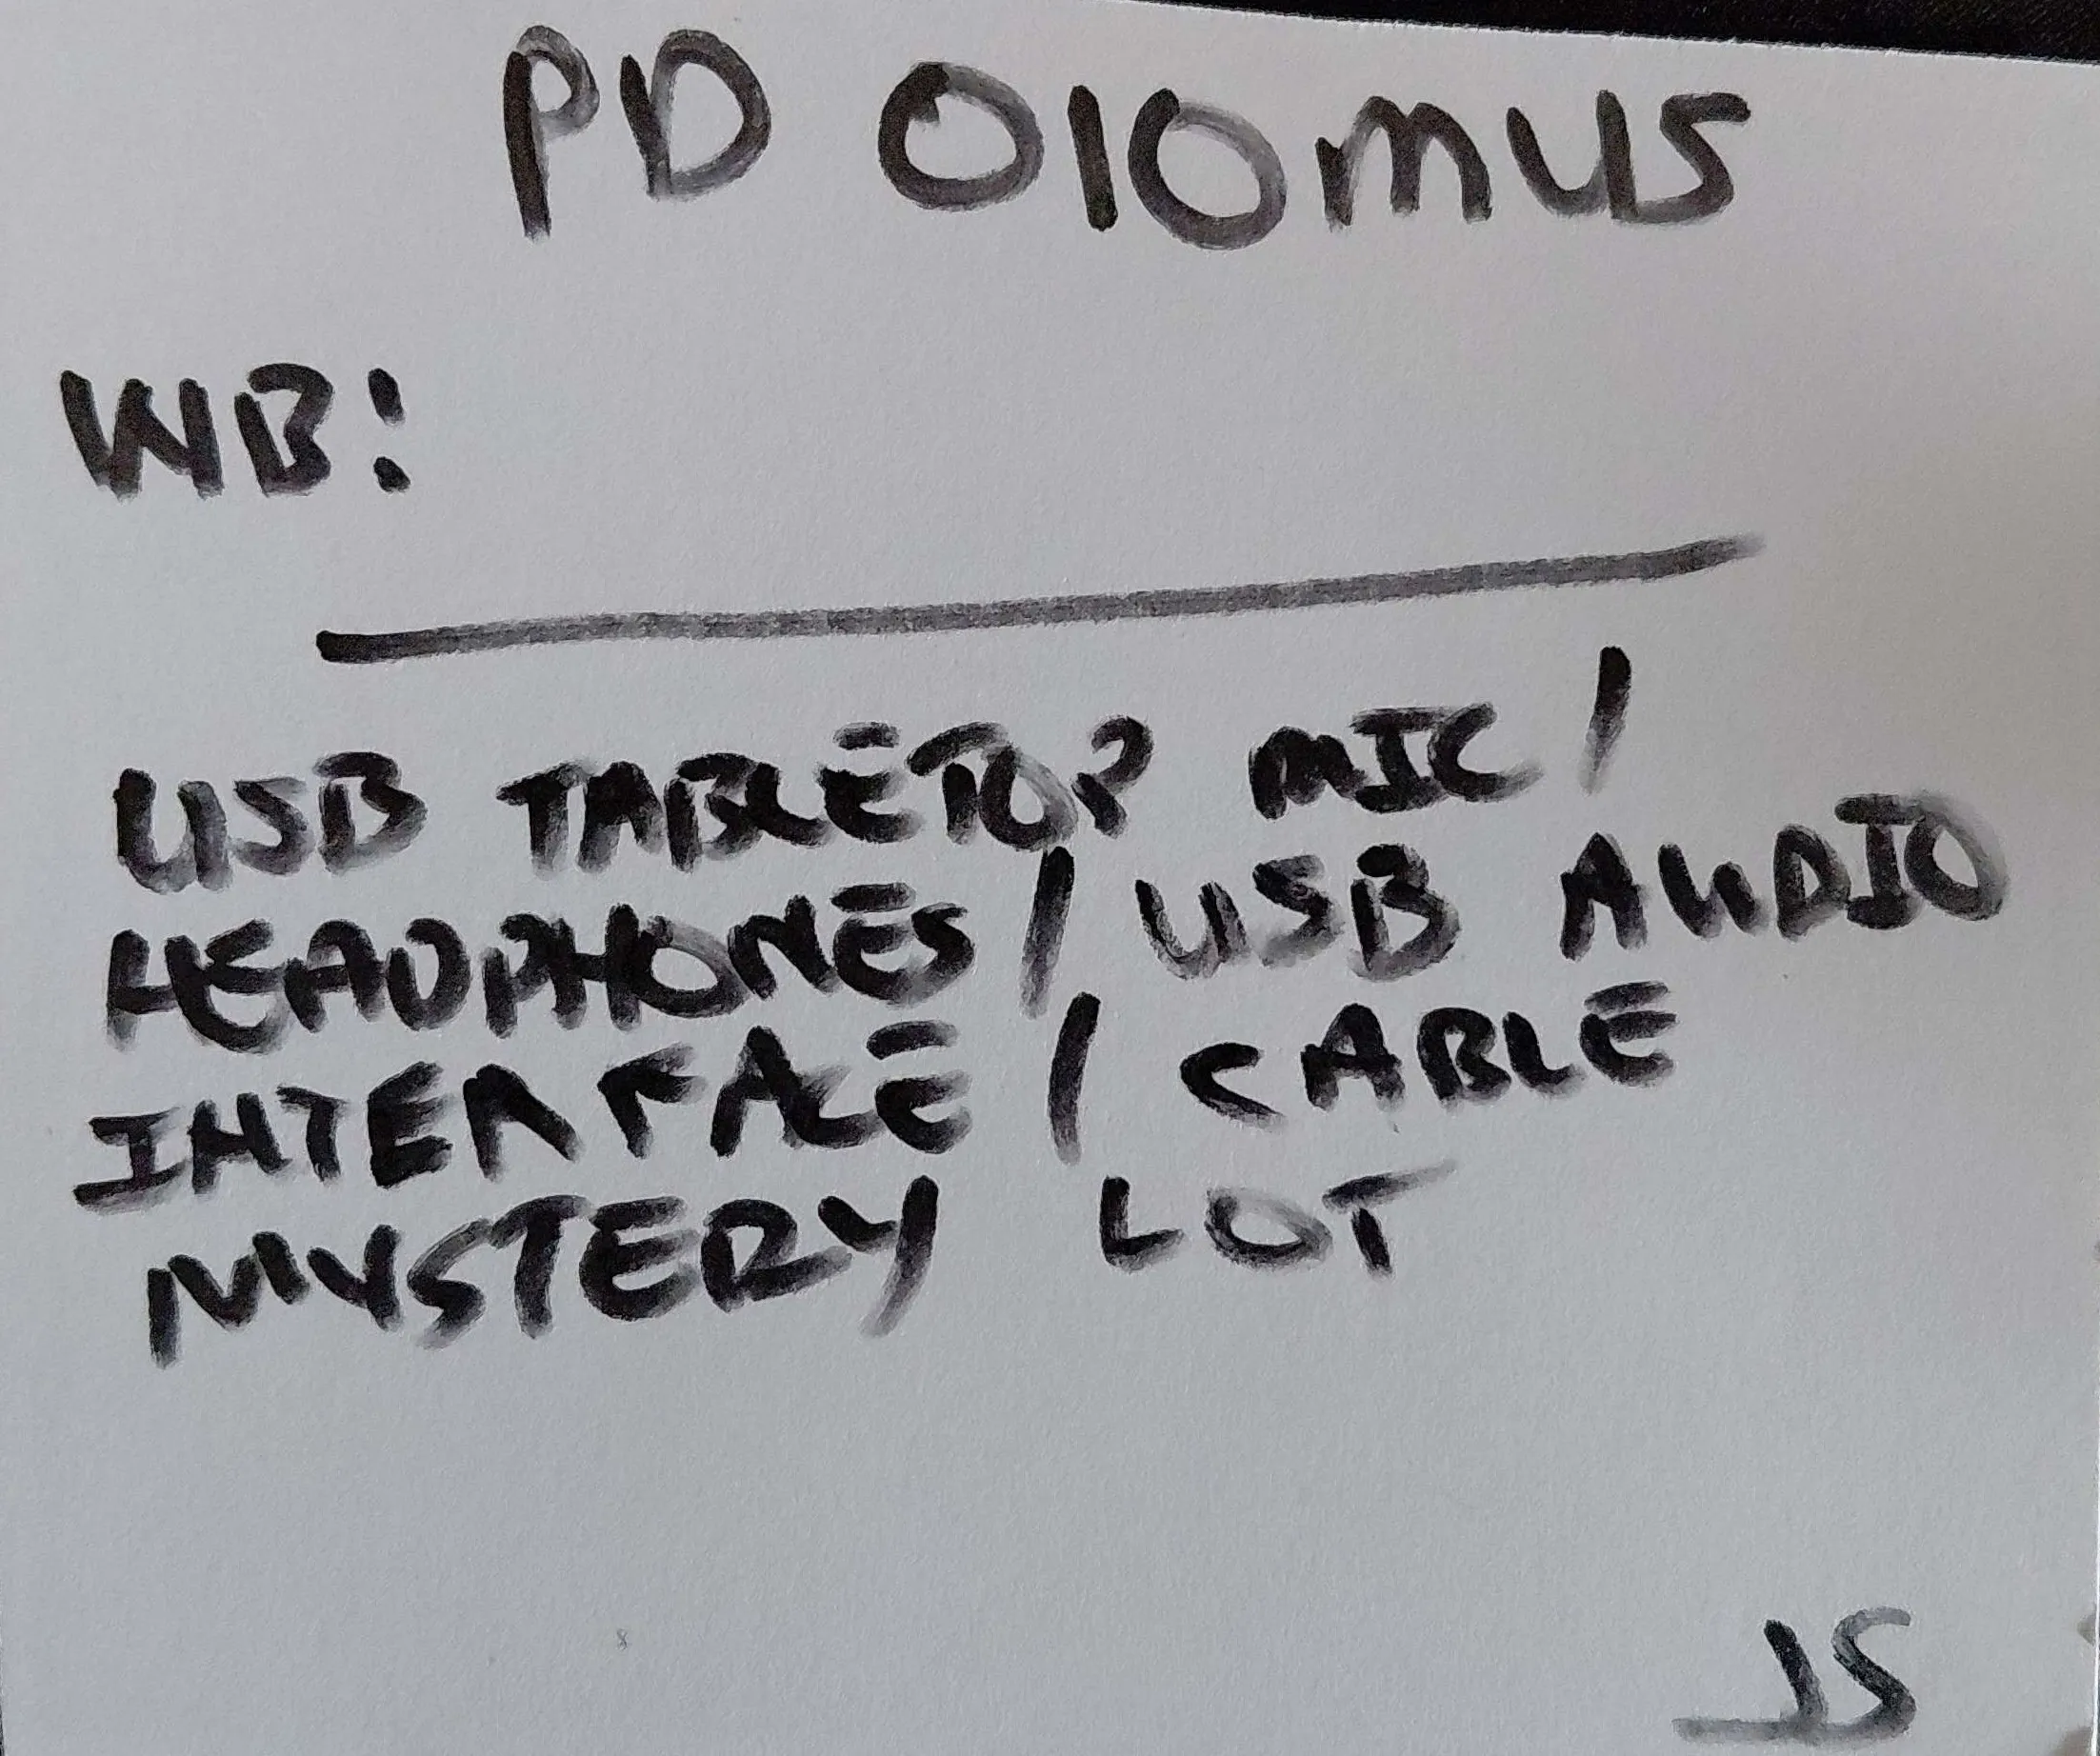 PD 010MUS
WB:
USB TABLETOP MIC /
HEADPHONES / USB AUDIO
INTERFACE / CABLE
MYSTERY LOT
JS